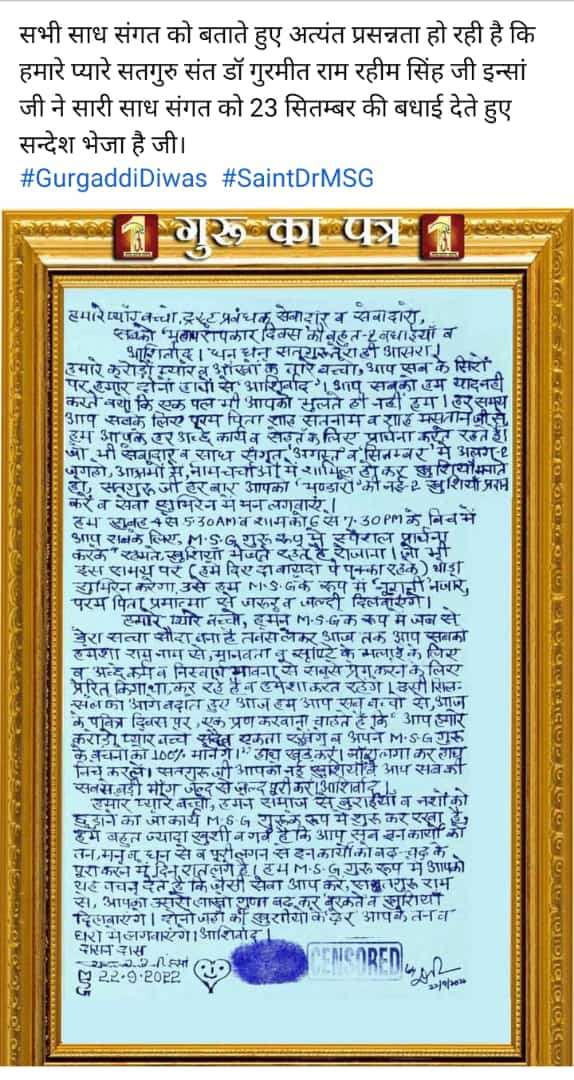 सभी साध संगत को बताते हुए अत्यंत प्रसन्नता हो रही है कि
हमारे प्यारे सतगुरु संत डॉ गुरमीत राम रहीम सिंह जी इन्सां
जी ने सारी साध संगत को 23 सितम्बर की बधाई देते हुए
सन्देश भेजा है जी।
#GurgaddiDiwas #SaintDrMSG
गुरू का पत्र
हमारे प्यारे बच्चो, ट्रस्ट प्रबंधक सेवादार व सेवादारो,
सबको "महापरोपकार दिवस की बहुत-२ बधाईयाँ व
आशिर्वाद। "धन धन सतगुरु तेरा ही आसरा।
हमारे करोड़ों प्यारे व आँखो के तारे बच्चो, आप सब के सिरों
पर हमारे दोनो हाथो से आशिर्वाद"। आप सबको हम याद नही
करते क्यो कि एक पल भी आपको भुलते ही नही हम। हर समय
आप सबके लिए परम पिता शाह सतनाम व शाह मस्ताना जी से,
हम आपके हर अच्छे कार्य व सेहत के लिए प्रार्थना करते रहते है।
जो भी सेवादार व साध संगत, अगस्त व सितम्बर में अलग-२
जगहो, आश्रमो में, नाम चर्चाओ में शामिल हो कर खुशियाँ मनाते
हो, सतगुरु जी हर बार आपको "भण्डारो" की नई-२ खुशियाँ प्रदान
करे व सेवा सुमिरन में मन लगवाएं।
हम सुबह 4 से 5:30AM व शाम को 6 से 7:30PM के बिच में
आप सबके लिए, M.S.G गुरू रूप में स्पेशल प्रार्थना
करके रहमत, खुशियाँ भेजते रहते है रोजाना। जो भी
इस समय पर (हम दिए दो वायदो पे पक्का रहके) थोड़ा
सुमिरन करेगा, उसे हम M.S.G के रूप में "नुरानी नजारे,
परम पिता प्रमात्मा से जरूर व जल्दी दिलवाएंगे।
हमारे प्यारे बच्चो, हमने M.S.G के रूप में जब से
डेरा सच्चा सौदा बना है तबसे लेकर आज तक आप सबको
हमेशा राम नाम से, मानवता व सृष्टि के भलाई के लिए
व अच्छे कर्म व निस्वार्थ भावना से सबसे प्रेम करने के लिए
प्रेरित किया था, कर रहे है व हमेशा करते रहेंगे। उसी सिल-
सिले को आगे बढ़ाते हुए आज हम आप सब बच्चो से, आज
के पवित्र दिवस पर, एक प्रण करवाना चाहते है कि "आप हमारे
करोड़ो प्यारे बच्चे एकता रखेंगे व अपने M.S.G गुरू
के वचनो को 100% मानेंगे।" हाथ खड़े करे। नारा लगा कर हाथ
निचे करले। सतगुरु जी आपको नई खुशियाँ व आप सबकी
सबसे बड़ी माँग जल्द से जल्द पुरी करे। आशिर्वाद।
हमारे प्यारे बच्चो, हमने समाज से बुराईयाँ व नशो को
छुड़ाने का जो कार्य M.S.G गुरू के रूप में शुरू कर रखा है,
हमे बहुत ज्यादा खुशी व गर्व है कि आप सब इन कार्यो को
तन, मन, व धन से व पुरी लगन से इन कार्यो को बढ़-चढ़ के
पुरा करने में दिन रात लगे है। हम M.S.G गुरू रूप में आपको
यह वचन देते है कि जैसी सेवा आप करे, सतगुरु राम
से, आपको उससे लाखो गुणा बढ़ कर बरकते व खुशियाँ
दिलवाएंगे। दोनो जहाँ की खुशीयो के ढेर आपके तन व
घरो में लगवाएंगे। आशिर्वाद।
दासन दास
MSG 22-9-2022
CENSORED
22/9/2022